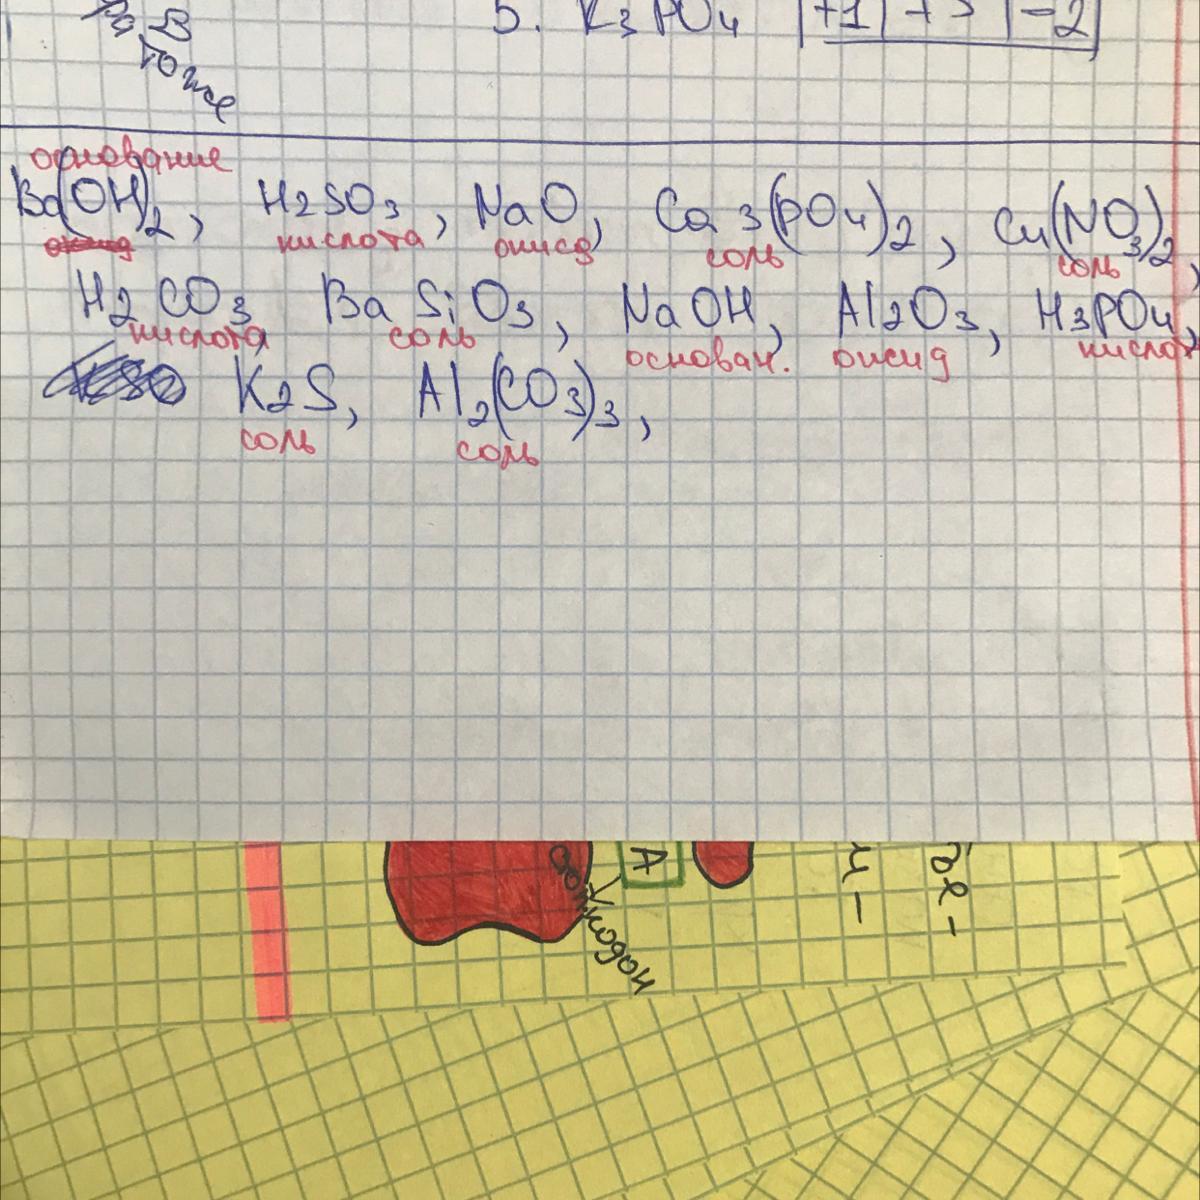 В
тоже
5. K3PO4 +1 +5 -2
основание
Ba(OH)2, H2SO3, NaO, Ca3(PO4)2, Cu(NO3)2,
кислота оксид соль соль
H2CO3 BaSiO3, NaOH, Al2O3, H3PO4,
кислота соль основан. оксид кислот
K2S, Al2(CO3)3,
соль соль
А
кодон